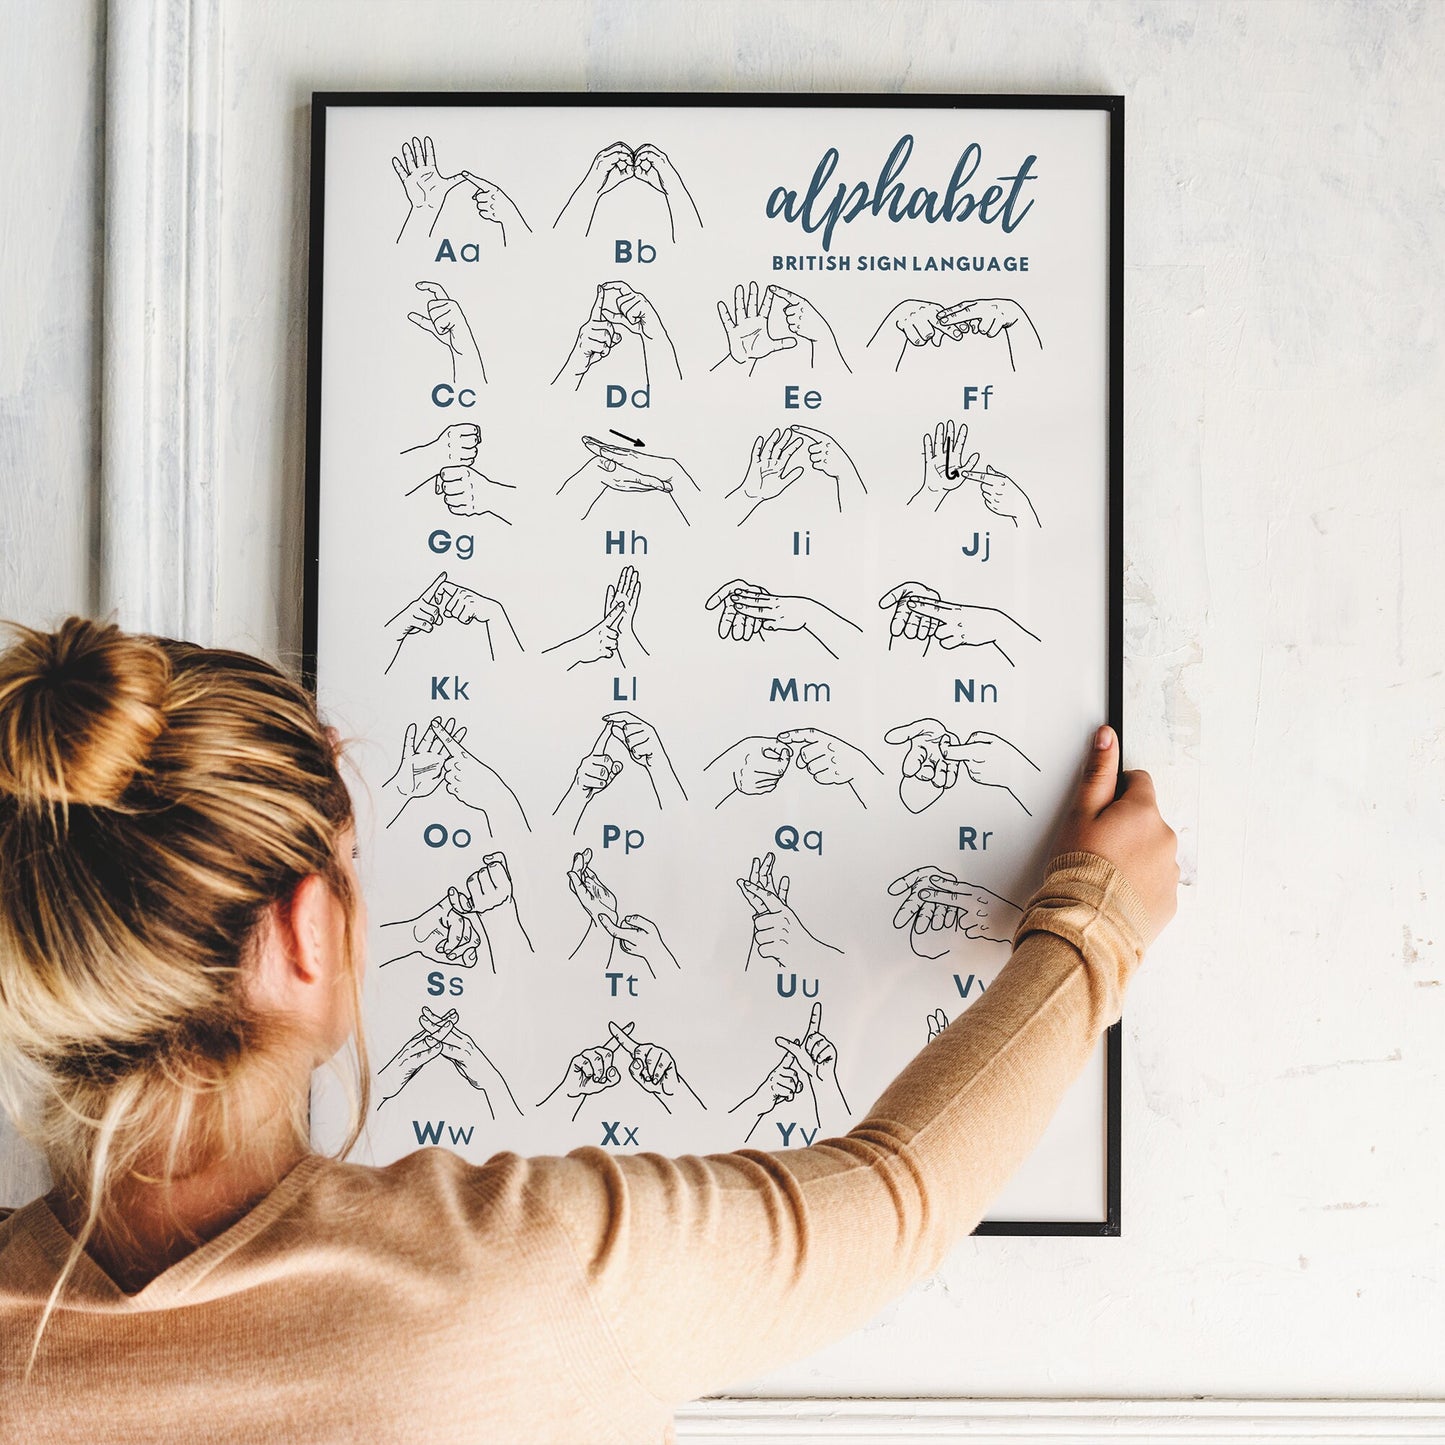 alphabet
BRITISH SIGN LANGUAGE
Aa Bb
Cc Dd Ee Ff
Gg Hh Ii Jj
Kk Ll Mm Nn
Oo Pp Qq Rr
Ss Tt Uu Vv
Ww Xx Yy